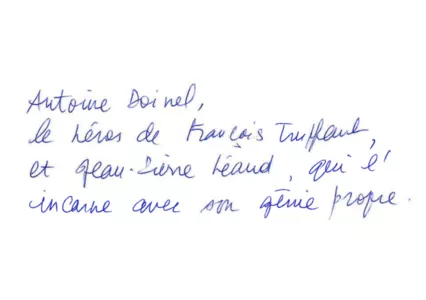 Antoine Doinel,
le héros de François Truffaut,
et Jean-Pierre Léaud, qui l'
incarne avec son génie propre.